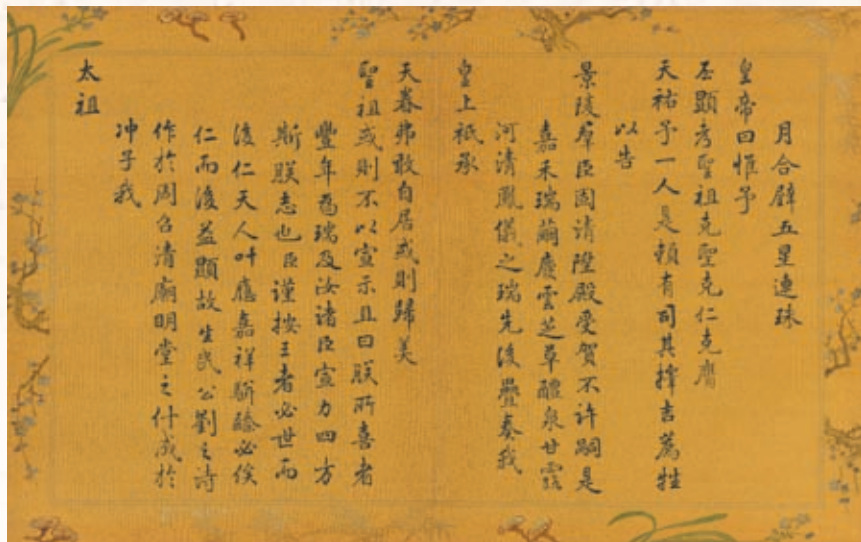 月合璧五星連珠
皇帝曰惟予
丕顯考聖祖克聖克仁克膺
天祐予一人是賴有司其擇吉薦牲
以告
景陵羣臣固請陞殿受賀不許嗣是
嘉禾瑞繭慶雲芝草醴泉甘露
河清鳳儀之瑞先後疊奏我
皇上祗承
天眷弗敢自居或則歸美
聖祖或則不以宣示且曰朕所喜者
豐年為瑞及汝諸臣宣力四方
斯朕志也臣謹按王者必世而
後仁天人叶應嘉祥駢臻必俟
仁而後益顯故生民公劉之詩
作於周召清廟明堂之什成於
冲子我
太祖